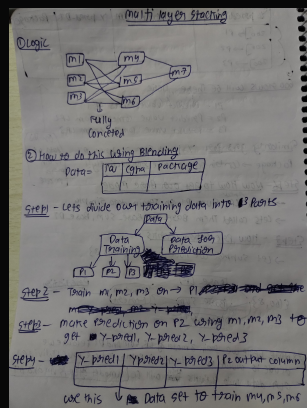 multi layer stacking
① Logic
m1 m4
m2 m5 m7
m3 m6
Fully
Conceted
② How to do this using Blending
Data= IQ Cgpa Package
Step1 - Lets divide our training data into 3 Parts
Data
Data Training Data for Prediction
P1 P2 P3
Step 2 - Train m1, m2, m3 on → P1
Step3 - make Prediction on P2 using m1, m2, m3 to
get Y-pred1, Y-pred2, Y-pred3
Step4 - Y-pred1 Ypred2 Y-pred3 P2 output column
use this Data set to train m4, m5, m6